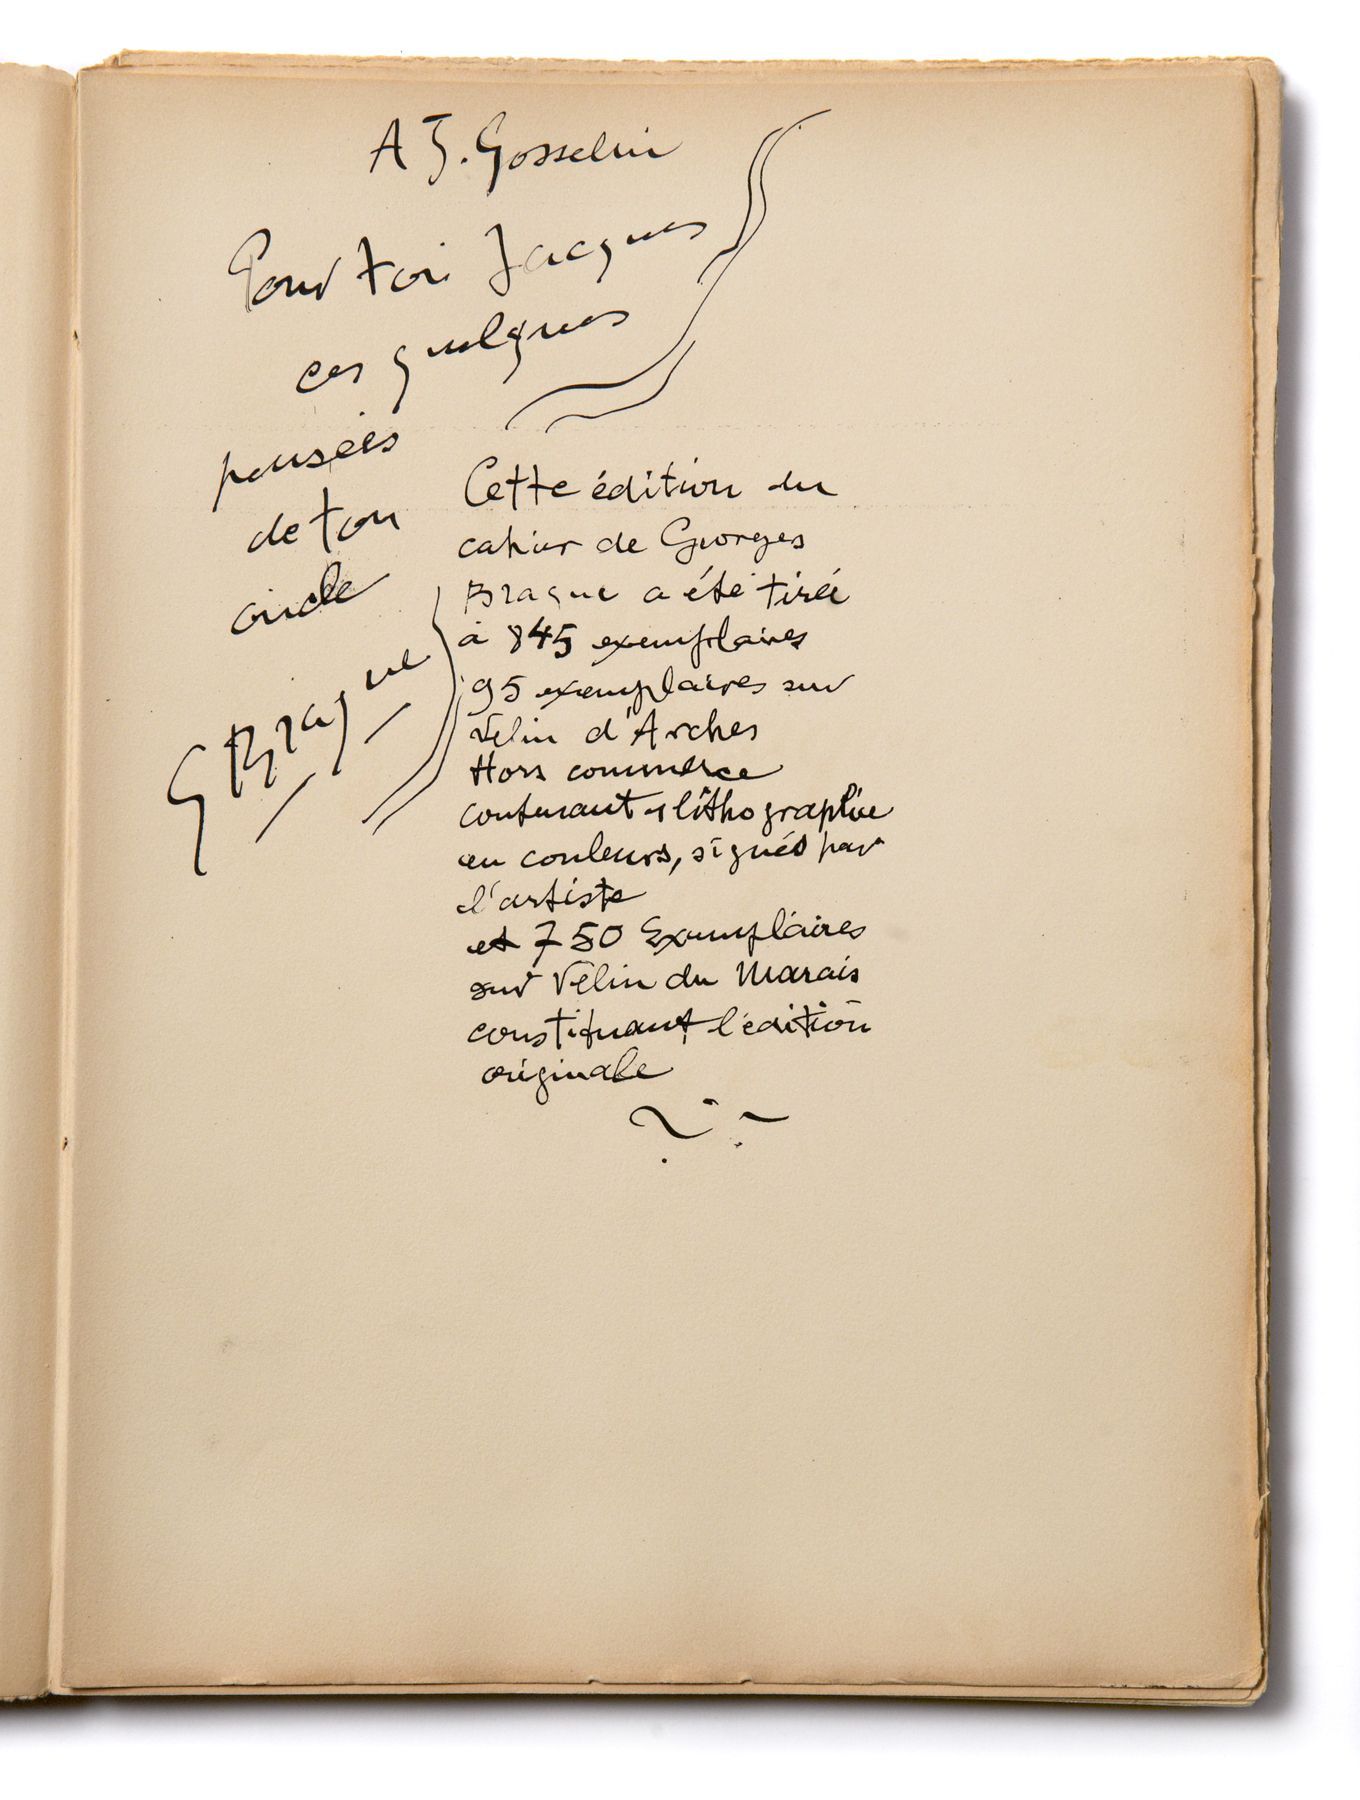 A J. Gosselin
Pour toi Jacques
ces quelques
pensées
de ton
oncle
G Braque
Cette édition du
cahier de Georges
Braque a été tirée
à 845 exemplaires
95 exemplaires sur
Vélin d'Arches
Hors commerce
contenant 1 lithographie
en couleurs, signés par
l'artiste
et 750 Exemplaires
sur Vélin du Marais
constituant l'édition
originale